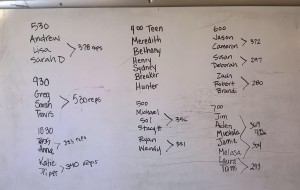 530
Andrew
Lisa
Sarah D
930
Greg
Sarah
Travis
> 520 reps
1030
Anne
Katie
> 340 reps
400 Teen
Meredith
Bethany
Henry
Sydney
Breaker
Hunter
500
Michael
Sol
Stacy
> 356
Ryan
Wendy
> 351
600
Jason
Cameron
> 372
Susan
Deborah
> 287
Zach
Robert
Brandi
> 280
700
Jim
Aiden
Michele
Jamie
Melissa
Laura
Tami